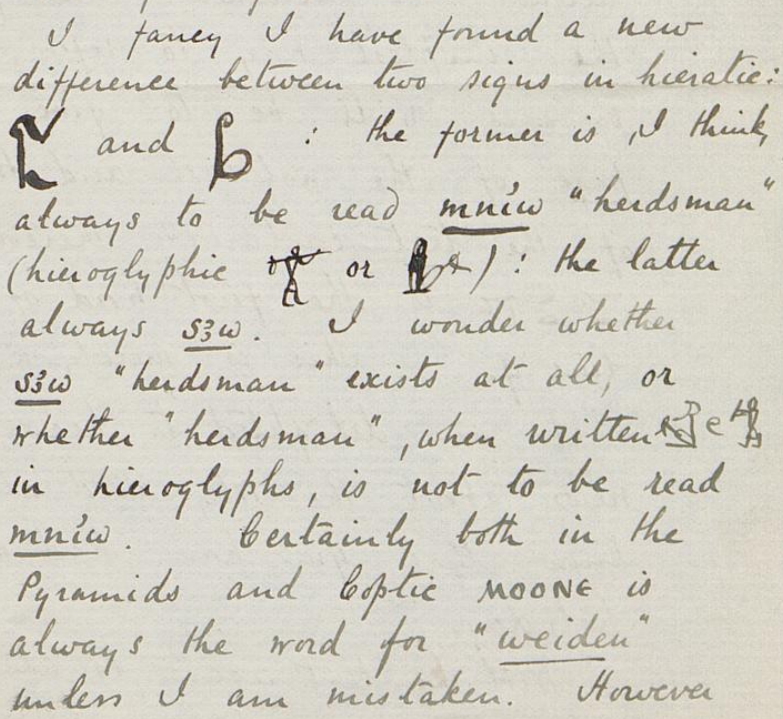 I fancy I have found a new
difference between two signs in hieratic:
and : the former is, I think,
always to be read mnἰw "herdsman"
(hieroglyphic or ) : the latter
always sꜣw. I wonder whether
sꜣw "herdsman" exists at all, or
whether "herdsman", when written
in hieroglyphs, is not to be read
mnἰw. Certainly both in the
Pyramids and Coptic ⲙⲟⲟⲛⲉ is
always the word for "weiden"
unless I am mistaken. However